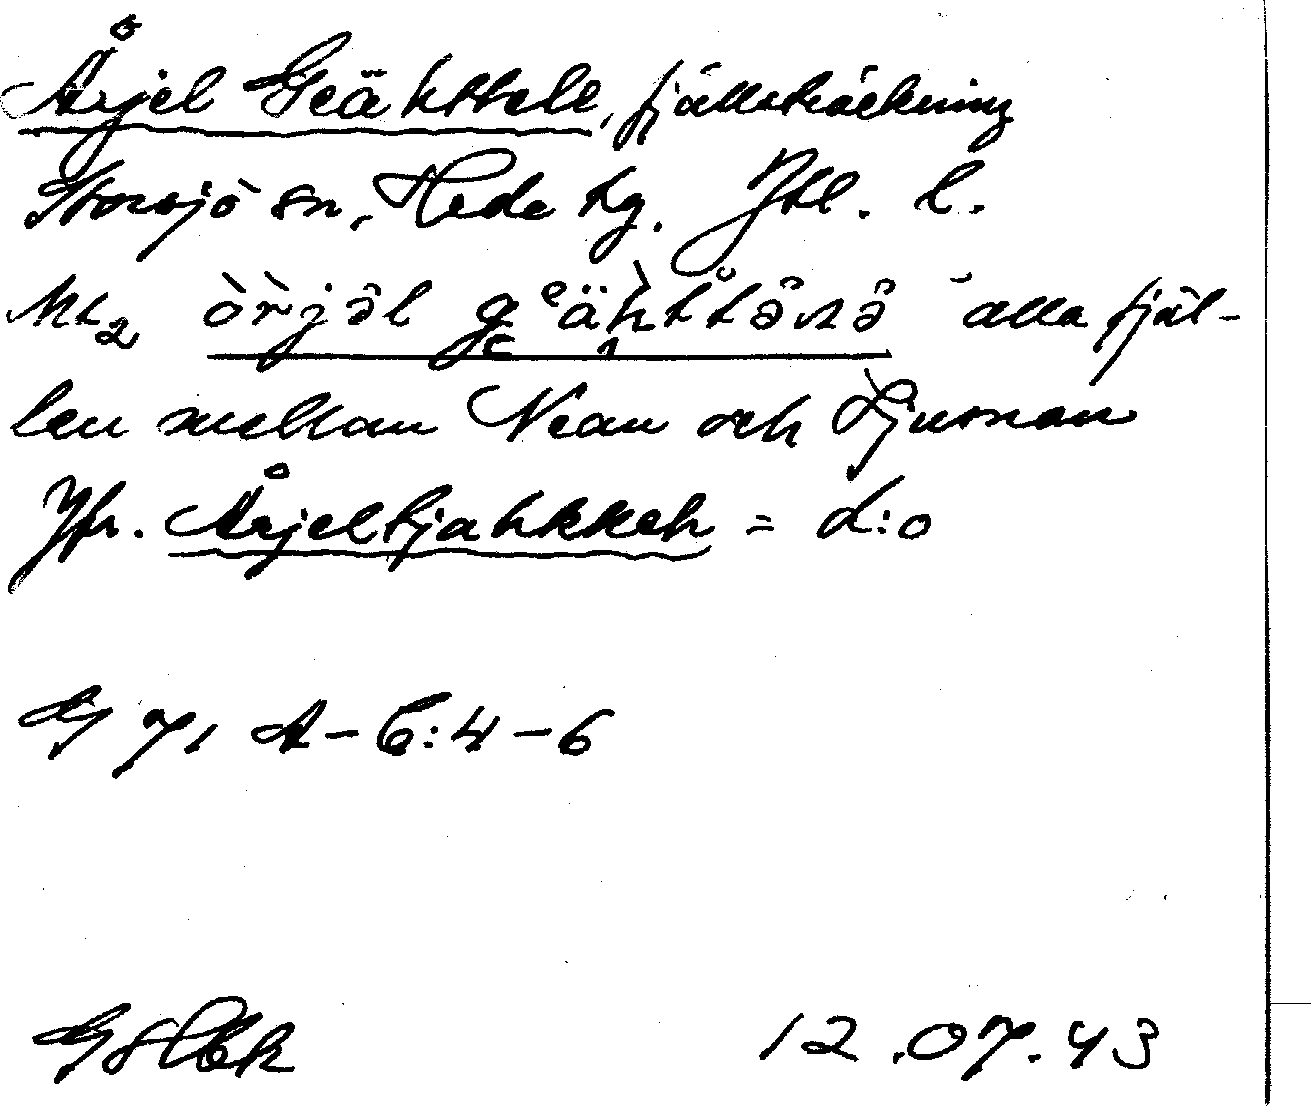 Årjel Geähttele, fjällsträckning
Storsjö sn, Hede tg. Jtl. l.
Mt2 òr̀jə̂l geähttə̂nə̂ alla fjäl-
len mellan Nean och Ljusnan
Jfr. Årjeltjahkkeh = d:o
G 71 A-C:4-6
12.07.43